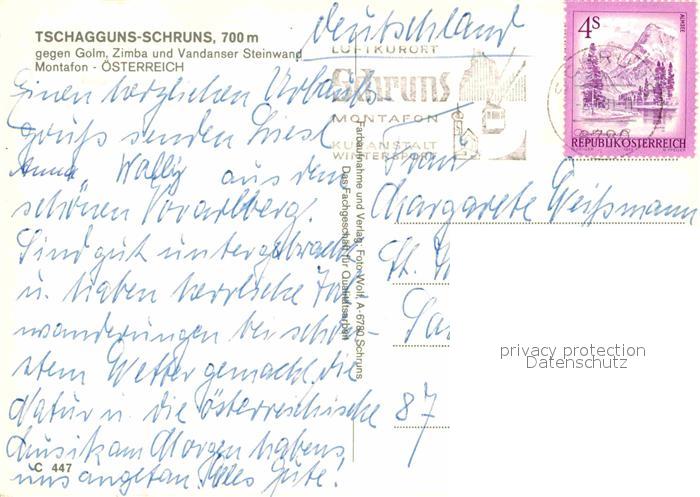 TSCHAGGUNS-SCHRUNS, 700 m
gegen Golm, Zimba und Vandanser Steinwand
Montafon - ÖSTERREICH
Deutschland
LUFTKURORT
Schruns
MONTAFON
KURANSTALT
WINTERSPORT
4S
ALMSEE
REPUBLIK ÖSTERREICH
Einen herzlichen Urlaubs-
gruß senden Liesl
Anna Wally aus dem
schönen Vorarlberg.
Sind gut untergebracht
u. haben herrliche
wanderungen bei schön-
stem Wetter gemacht, die
Natur u. die österreichische
Musik am Morgen habens
uns angetan. Alles Gute!
C 447
Farbaufnahme und Verlag: Foto-Wolf, A-6780 Schruns
Das Fachgeschäft für Qualitätsarbeit
Frau
Margarete Weißmann
St.
87
privacy protection
Datenschutz